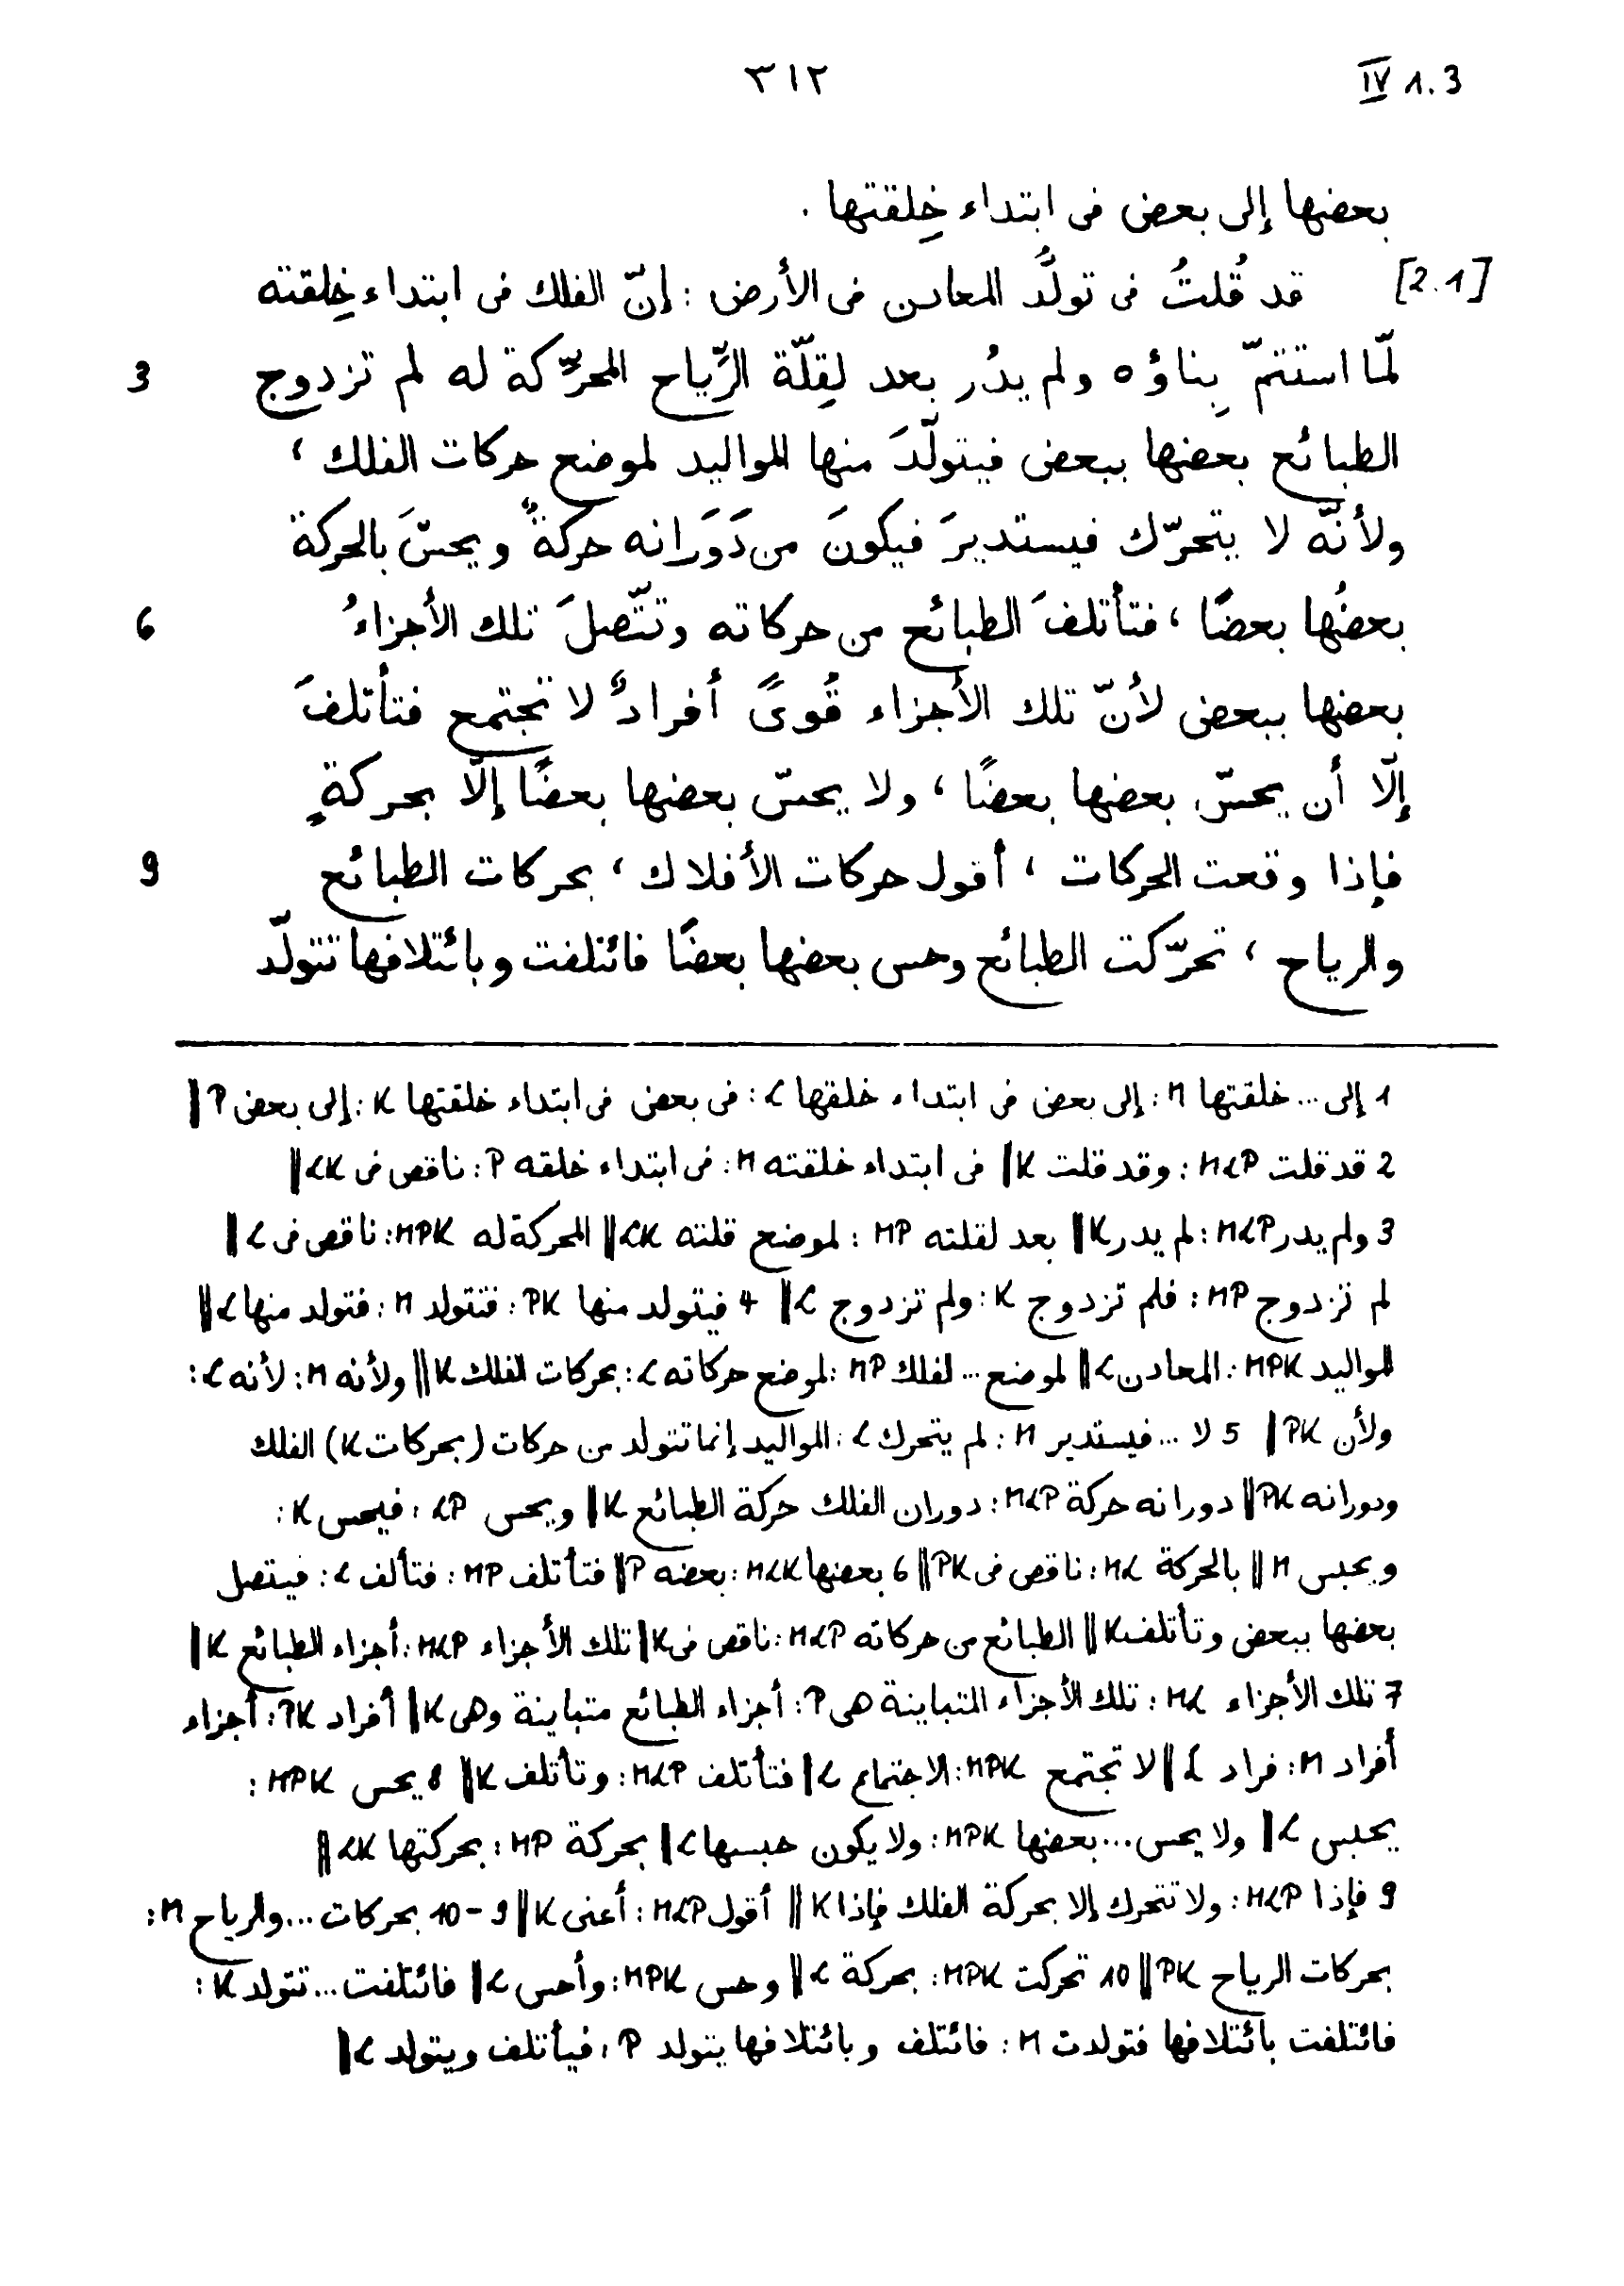 ٣١٢
IV 1.3
بعضها إلى بعض فى ابتداء خِلقتها .
[2.1] قد قُلتُ فى تولُّد المعادن فى الأرض : إنّ الفلك فى ابتداء خِلقته
3 لمّا استتمّ بِناؤه ولم يدُر بعد لقِلّة الرِّياح المحرِّكة له لم تزدوج
الطبائع بعضها ببعض فيتولّدَ منها المواليد لموضع حركات الفلك ،
ولأنّه لا يتحرّك فيستديرَ فيكونَ من دَوَرانه حركةٌ ويحسّ بالحركة
6 بعضُها بعضًا ، فتأتلفَ الطبائع من حركاته وتتّصلَ تلك الأجزاءُ
بعضها ببعض لأنّ تلك الأجزاء قُوىً أفرادٌ لا تجتمع فتأتلفَ
إلّا أن يحسّ بعضها بعضًا ، ولا يحسّ بعضها بعضًا إلّا بحركةٍ
9 فإذا وقعت الحركات ، أقول حركات الأفلاك ، بحركات الطبائع
والرياح ، تحرّكت الطبائع وحس بعضها بعضًا فائتلفت وبائتلافها تتولّد
1 إلى... خلقتها M : إلى بعض فى ابتداء خلقها L : فى بعض فى ابتداء خلقتها K : إلى بعض P ‖
2 قد قلت MLP : وقد قلت K ‖ فى ابتداء خلقته M : فى ابتداء خلقه P : ناقص فى LK ‖
3 ولم يدر MLP : لم يدر K ‖ بعد لقلته MP : لموضع قلته LK ‖ المحركة له MPK : ناقص فى L ‖
لم تزدوج MP : فلم تزدوج K : ولم تزدوج L ‖ 4 فيتولد منها PK : فتتولد M : فتولد منها L ‖
المواليد MPK : المعادن L ‖ لموضع... لفلك MP : لموضع حركاته L : بحركات الفلك K ‖ ولأنه M : لأنه L :
ولأن PK ‖ 5 لا ... فيستدير M : لم يتحرك L : المواليد إنما تتولد من حركات (بحركات K) الفلك
ودورانه PK ‖ دورانه حركة MLP : دوران الفلك حركة الطبائع K ‖ ويحس LP : فيحس K :
ويحبس M ‖ بالحركة ML : ناقص فى PK ‖ 6 بعضها MLK : بعضه P ‖ فتأتلف MP : فتألف L : فيتصل
بعضها ببعض وتأتلف K ‖ الطبائع من حركاته MLP : ناقص فى K ‖ تلك الأجزاء MLP : أجزاء الطبائع K ‖
7 تلك الأجزاء ML : تلك الأجزاء المتباينة هى P : أجزاء الطبائع متباينة وهى K ‖ أفراد PK : أجزاء
أفراد M : فراد L ‖ لا تجتمع MPK : الاجتماع L ‖ فتأتلف MLP : وتأتلف K ‖ 8 يحس MPK :
يحبس L ‖ ولا يحس ... بعضها MPK : ولا يكون حبسها L ‖ بحركة MP : بحركتها LK ‖
9 فإذا MLP : ولا تتحرك إلا بحركة الفلك فإذا K ‖ أقول MLP : أعنى K ‖ 9-10 بحركات ... والرياح M :
بحركات الرياح PK ‖ 10 تحركت MPK : بحركة L ‖ وحس MPK : وأحس L ‖ فائتلفت ... تتولد K :
فائتلفت بائتلافها فتولدت M : فائتلف وبائتلافها يتولد P : فيأتلف ويتولد L ‖